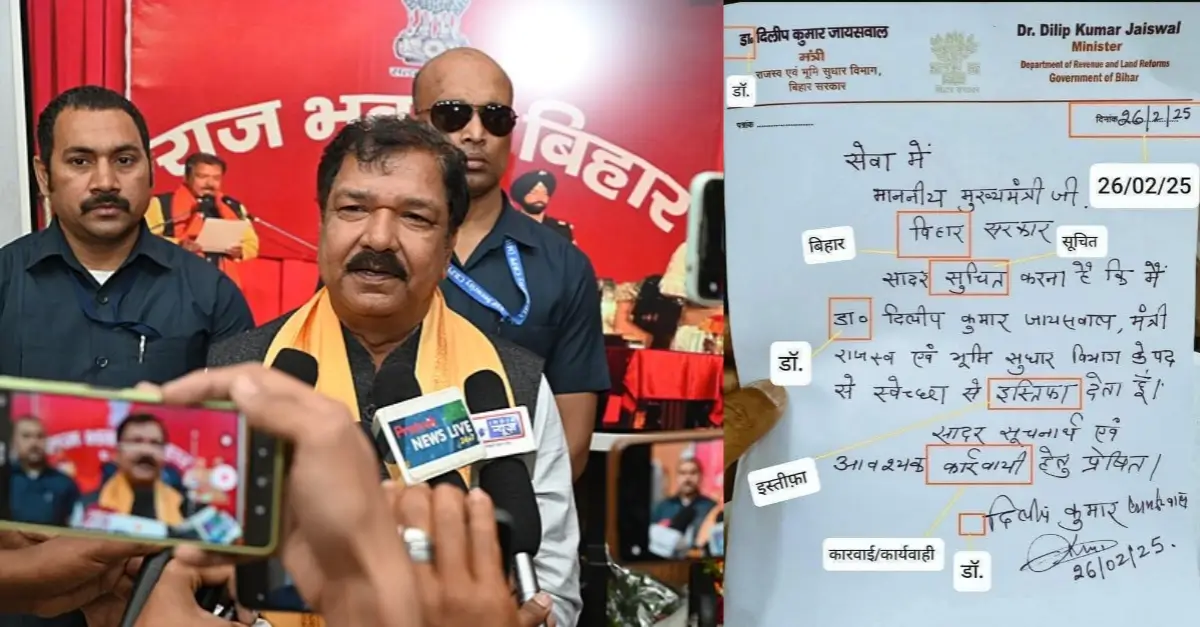 राज भवन बिहार
Pratham
NEWS LIVE
24x7
न्यूज़
डा० दिलीप कुमार जायसवाल
मंत्री
राजस्व एवं भूमि सुधार विभाग,
बिहार सरकार
Dr. Dilip Kumar Jaiswal
Minister
Department of Revenue and Land Reforms
Government of Bihar
डॉ.
पत्रांक ....................
दिनांक 26/2/25
26/02/25
सेवा में
माननीय मुख्यमंत्री जी.
बिहार
विहार सरकार
सूचित
सादर सुचित करना है कि मैं
डा० दिलीप कुमार जायसवाल, मंत्री
डॉ.
राजस्व एवं भूमि सुधार विभाग के पद
से स्वेच्छा से इस्तिफा देता हूँ।
सादर सूचनार्थ एवं
आवश्यक कार्रवायी हेतु प्रेषित।
इस्तीफ़ा
दिलीप कुमार
कारवाई/कार्यवाही
डॉ.
26/02/25.